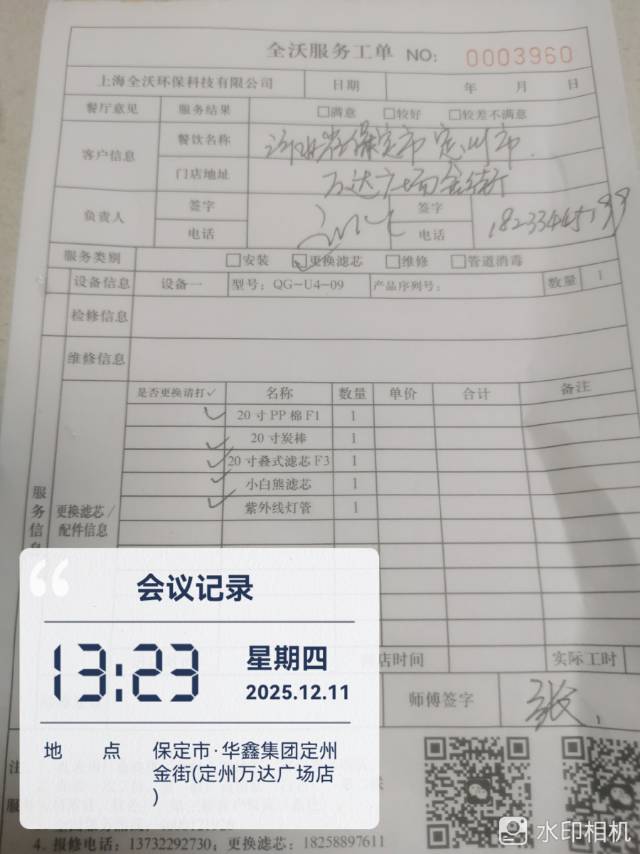 全沃服务工单 NO: 0003960
上海全沃环保科技有限公司 日期 年 月 日
餐厅意见 服务结果 □满意 □较好 □较差不满意
客户信息 餐饮名称 河北省保定市定州市
门店地址 万达广场金街
负责人 签字 签字
电话 电话 18233445199
服务类别 □安装 ☑更换滤芯 □维修 □管道消毒
设备信息 设备一 型号: QG-U4-09 产品序列号: 数量 1
检修信息
维修信息
是否更换请打✓ 名称 数量 单价 合计 备注
✓ 20寸PP棉F1 1
✓ 20寸炭棒 1
✓ 20寸叠式滤芯F3 1
✓ 小白熊滤芯 1
✓ 紫外线灯管 1
服务信息
更换滤芯/配件信息
店时间 实际工时
师傅签字 张
会议记录
13:23
星期四
2025.12.11
地 点 保定市·华鑫集团定州
金街(定州万达广场店
)
4. 报修电话: 13732292730; 更换滤芯: 18258897611
水印相机